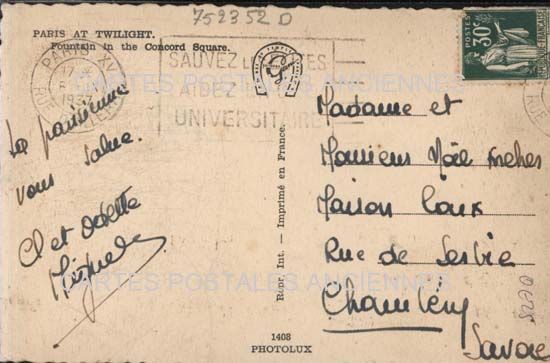 752352 D
PARIS AT TWILIGHT.
Fountain in the Concord Square.
PARIS XV
17
1937
SAUVEZ LES
AIDEZ
UNIVERSITAIRE
POSTES
30c
CARTES POSTALES ANCIENNES
La parisienne
vous salue.
Cl et Odette
Madame et
Monsieur Noël
Maison Roux
Rue de Serbie
Chambéry
Savoie
Repr. Int. - Imprimé en France.
CARTES POSTALES ANCIENNES
1408
PHOTOLUX